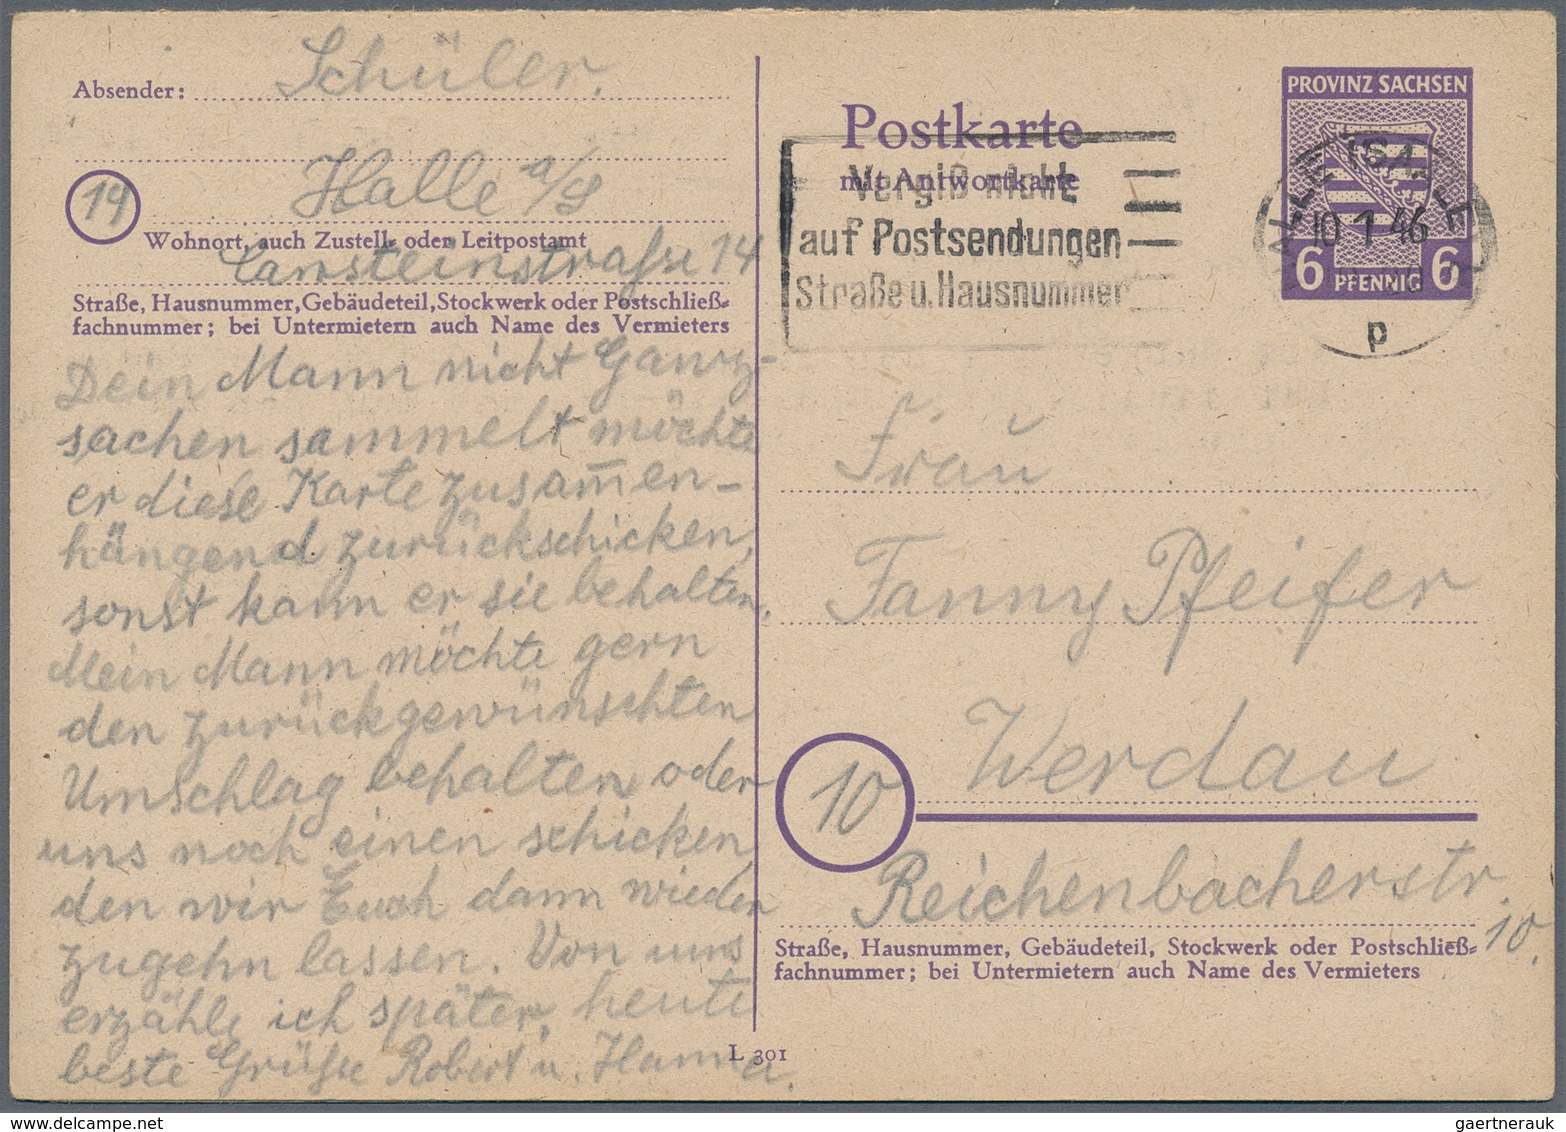 Absender: Schüler.
Halle a/S
14
Wohnort, auch Zustell- oder Leitpostamt
Cansteinstraße 14
Straße, Hausnummer, Gebäudeteil, Stockwerk oder Postschließ-
fachnummer; bei Untermietern auch Name des Vermieters
Dein Mann nicht Ganz-
sachen sammelt möchte
er diese Karte zusam̅en-
hängend zurückschicken,
sonst kann er sie behalten.
Mein Mann möchte gern
den zurückgewünschten
Umschlag behalten oder
uns noch einen schicken,
den wir Euch dann wieder
zugehn lassen. Von uns
erzähle ich später, heute
beste Grüße Robert u. Hanna.
Postkarte
mit Antwortkarte
Vergiß nicht
auf Postsendungen
Straße u. Hausnummer
PROVINZ SACHSEN
HALLE (SAALE)
10 1 46
6 PFENNIG 6
p
Frau
Fanny Pfeifer
Werdau
10
Reichenbacherstr.
10.
Straße, Hausnummer, Gebäudeteil, Stockwerk oder Postschließ-
fachnummer; bei Untermietern auch Name des Vermieters
L 301
gaertnerauk